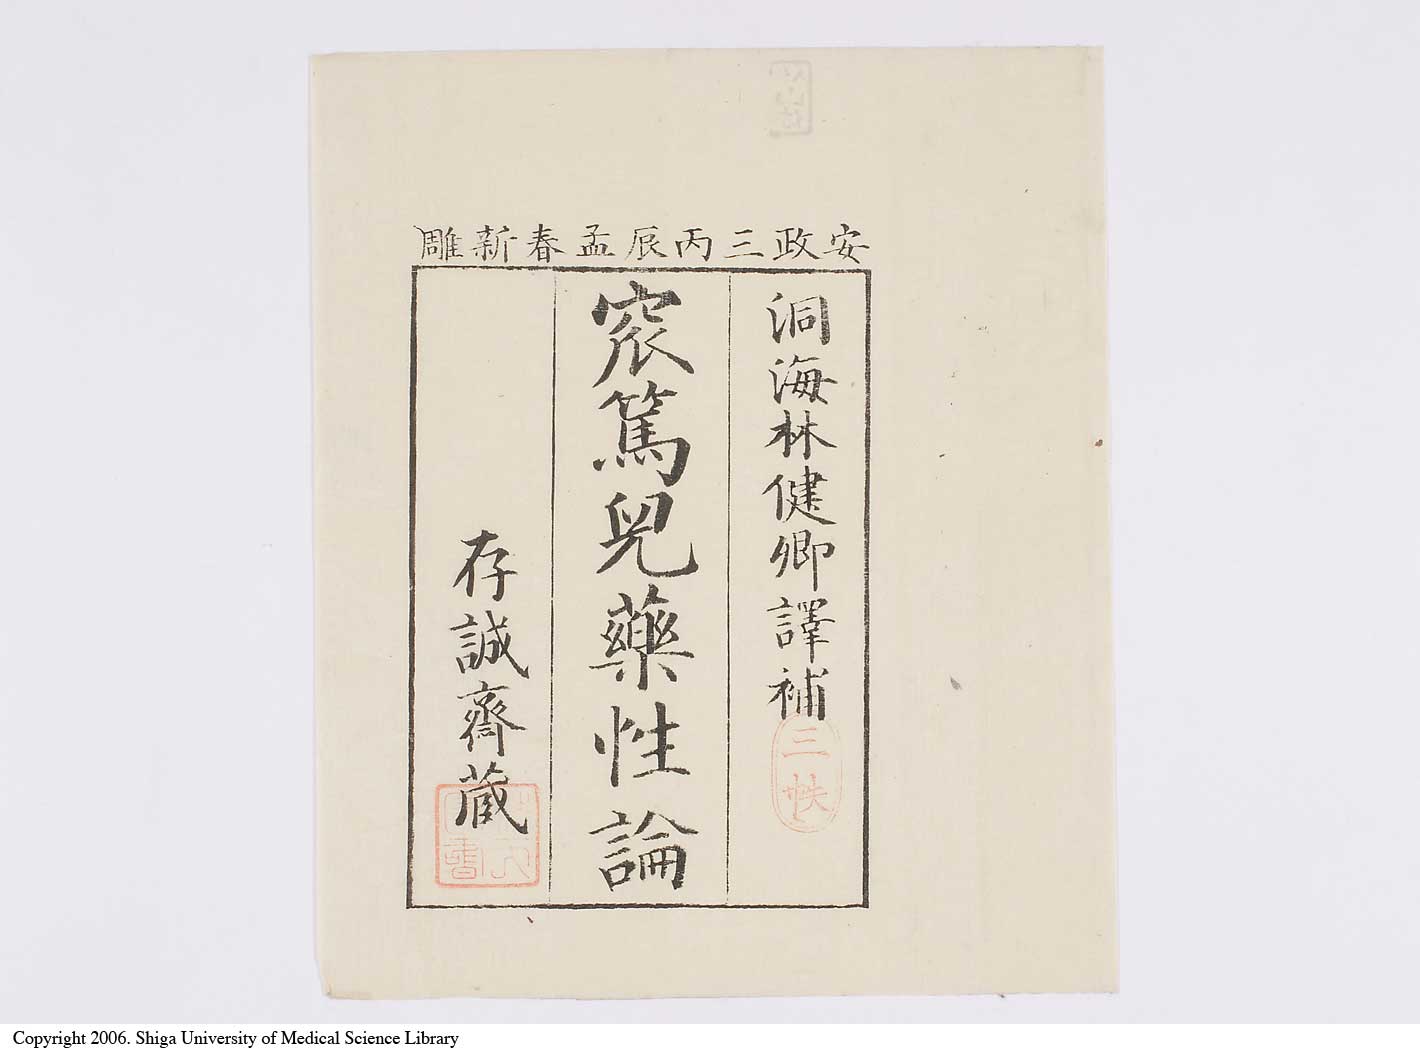 安政三丙辰孟春新雕
洞海林健卿譯補
窊篤兒藥性論
存誠齋蔵
三帙
Copyright 2006. Shiga University of Medical Science Library